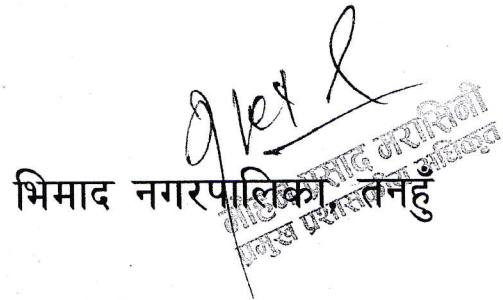 भिमाद नगरपालिका, तनहुँ
प्रसाद मरासिनी
प्रमुख प्रशासकीय अधिकृत